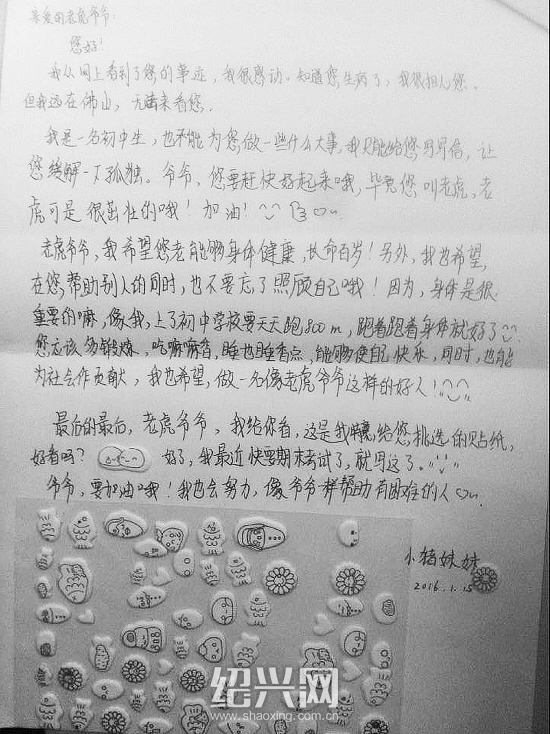 亲爱的老虎爷爷:
您好!
我从网上看到了您的事迹,我很感动。知道您生病了,我很担心您。
但我远在佛山,无法来看您。
我是一名初中生,也不能为您做一些什么大事,我只能给您写写信,让
您缓解一下孤独。爷爷,您要赶快好起来哦,毕竟您叫老虎。老
虎可是很茁壮的哦!加油!
老虎爷爷,我希望您老能够身体健康,长命百岁!另外,我也希望,
在您帮助别人的同时,也不要忘了照顾自己哦!因为,身体是很
重要的嘛,像我,上了初中学校要天天跑800m,跑着跑着身体就好了
您应该多锻炼,吃嘛嘛香,睡也睡香点,能够使自己快乐,同时,也能
为社会作贡献,我也希望,做一名像老虎爷爷这样的好人!
最后的最后,老虎爷爷,我给你看,这是我特意给您挑选的贴纸,
好看吗? 好了,我最近快要期末考试了,就写这了。
爷爷,要加油哦!我也会努力,像爷爷一样帮助有困难的人
小猪妹妹
2016.1.15
绍兴网
www.shaoxing.com.cn